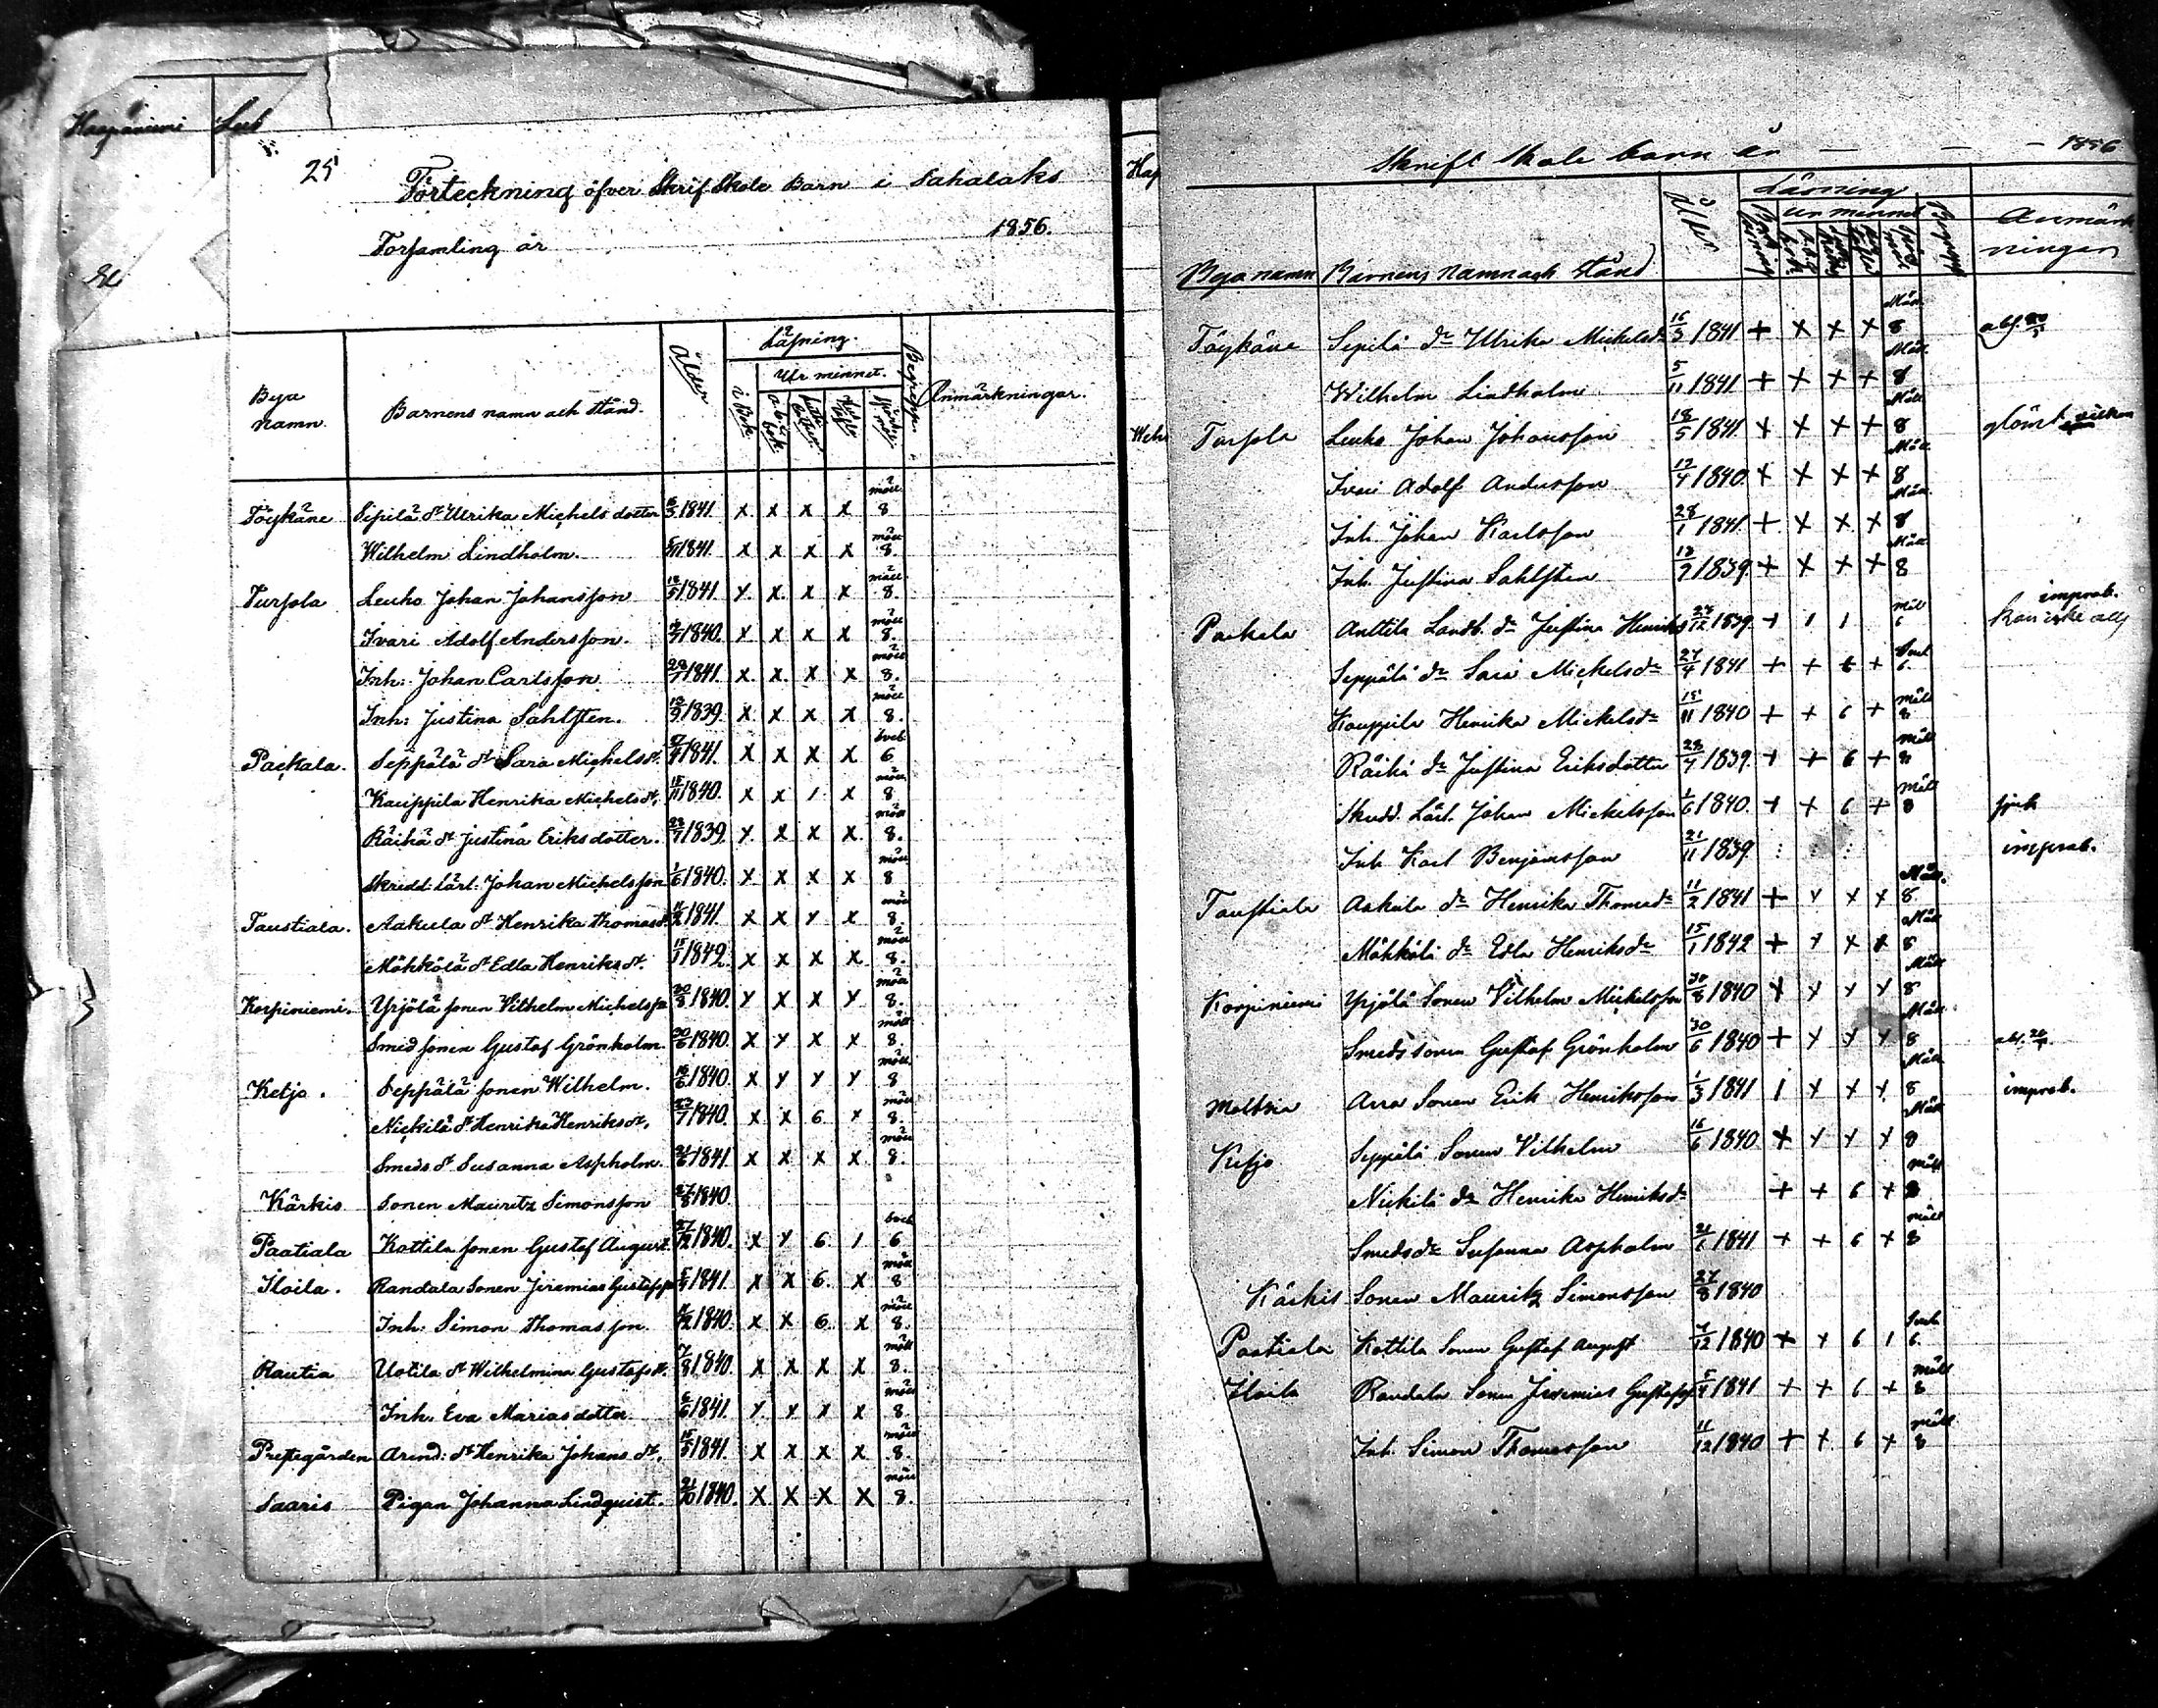 Haapaniemi
25
Förteckning öfver Skrif Skole Barn i Sahalaks
Forsamling år 1856.
Bya namn. Barnens namn och stånd. Ålder Läsning. i Bok Ur minnet. a-b-c bok Begrepp. Anmärkningar.
Töykäne Sipilä dr Ulrika Michels dotter 16/3 1841. x x x x möll 8
Wilhelm Lindholm. 5/11 1841. x x x x möll 8.
Tursola Leuko Johan Johansson 18/5 1841. x x x x möll 8.
Ivari Adolf Andersson. 1840. x x x x möll 8.
Inh: Johan Carlsson. 28/1 1841. x x x x möll 8.
Inh: Justina Sahlsten. 1839. x x x x möll 8.
Packala. Seppälä dr Sara Michels dr. 27/4 1841. x x x x 6
Kauppila Henrika Michels dr. 15/11 1840. x x 1 x möll 8
Räikä dr Justina Eriksdotter. 28/7 1839. x x x x möll 8.
Skredd: lärl: Johan Michelsson 1/6 1840. x x x x möll 8
Taustiala. Aakula dr Henrika Thomas dr. 11/2 1841. x x x x möll 8.
Möhkölä dr Edla Henriks dr. 15/1 1842. x x x x möll 8.
Korpiniemi. Yrjölä sonen Wilhelm Michelsson 30/8 1840. x x x x möll 8.
Smed sonen Gustaf Grönholm. 30/6 1840. x x x x möll 8.
Ketjo. Seppälä sonen Wilhelm. 16/6 1840. x x x x möll 8
Nickilä dr Henrika Henriks dr. 1840. x x 6 x möll 8.
Smeds dr Susanna Aspholm. 21/6 1841. x x x x möll 8.
Kärkis Sonen Mauritz Simonsson 27/8 1840.
Paatiala Kottila sonen Gustaf August. 1840. x x 6. 1 6
Iloila. Randala Sonen Jeremias Gustafsson 5/4 1841. x x 6. x möll 8
Inh: Simon Thomasson. 11/12 1840. x x 6. x möll 8.
Rautia Uotila dr Wilhelmina Gustafs dr. 1840. x x x x möll 8.
Inh. Eva Mariasdotter 6/6 1841. x x x x möll 8.
Prestegården Arend: dr Henrika Johans dr. 15/5 1841. x x x x möll 8.
Saaris Pigan Johanna Lindquist. 1840. x x x x möll 8.
Skrift Skole barn år — — — 1856
Bya namn Barnens namn och stånd Ålder Läsning ur minnet Begrepp Anmärkningar
Töykäne Sepilä dr Ulrika Mickelsdr 16/3 1841 + x x x Möll 8
Wilhelm Lindholm 5/11 1841 + x x + Möll 8
Tursola Leuko Johan Johansson 18/5 1841 x x x + Möll 8 glömt
Ivari Adolf Andersson 1840. x x x x Möll 8
Inh. Johan Karlsson 28/1 1841. + x x x Möll 8
Inh. Justina Sahlsten 1839. + x x + Möll 8
Packala Anttila Landb. dr Justina Henriks 1839. + 1 1 improb.
Seppälä dr Sara Mickels dr 27/4 1841 + + 6 + 6.
Kauppila Henrika Mickelsdr 15/11 1840 + + 6 + möll 8
Räikä dr Justina Eriksdotter 28/7 1839. + + 6 + möll 8
Skredd. Lärl. Johan Mickelsson 1/6 1840. + + 6 + möll 8 sjuk
Inh Karl Benjamsson 21/11 1839. improb.
Taustiala Aakula dr Henrika Thomasdr 11/2 1841 + x x x Möll. 8
Möhkölä dr Edla Henriksdr 15/1 1842 + x x x Möll 8
Korpiniemi Yrjölä Sonen Vilhelm Mickelsson 30/8 1840 x x x x Möll 8
Smeds sonen Gustaf Grönholm 30/6 1840 + x x x Möll 8
Arra Sonen Erik Henriksson 1/3 1841 1 x x x Möll 8 improb.
Ketjo Seppälä Sonen Vilhelm 16/6 1840 x x x x Möll 8
Nickilä dr Henrika Henriksdr + + 6 + möll 8
Smedsdr Susanna Aspholm 21/6 1841 + + 6 x möll 8
Kärkis Sonen Mauritz Simonsson 27/8 1840
Paatiala Kottila Sonen Gustaf August 1840 + + 6 1 6.
Iloila Randala Sonen Jeremias Gustafss 5/4 1841 + + 6 + möll 8
Inh. Simon Thomasson 11/12 1840 + + 6 + möll 8